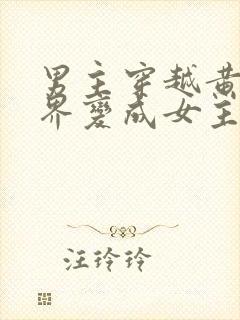 男主穿越黄
界变成女主
汪玲玲